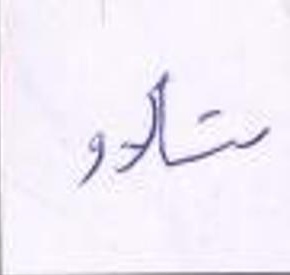 ستادو